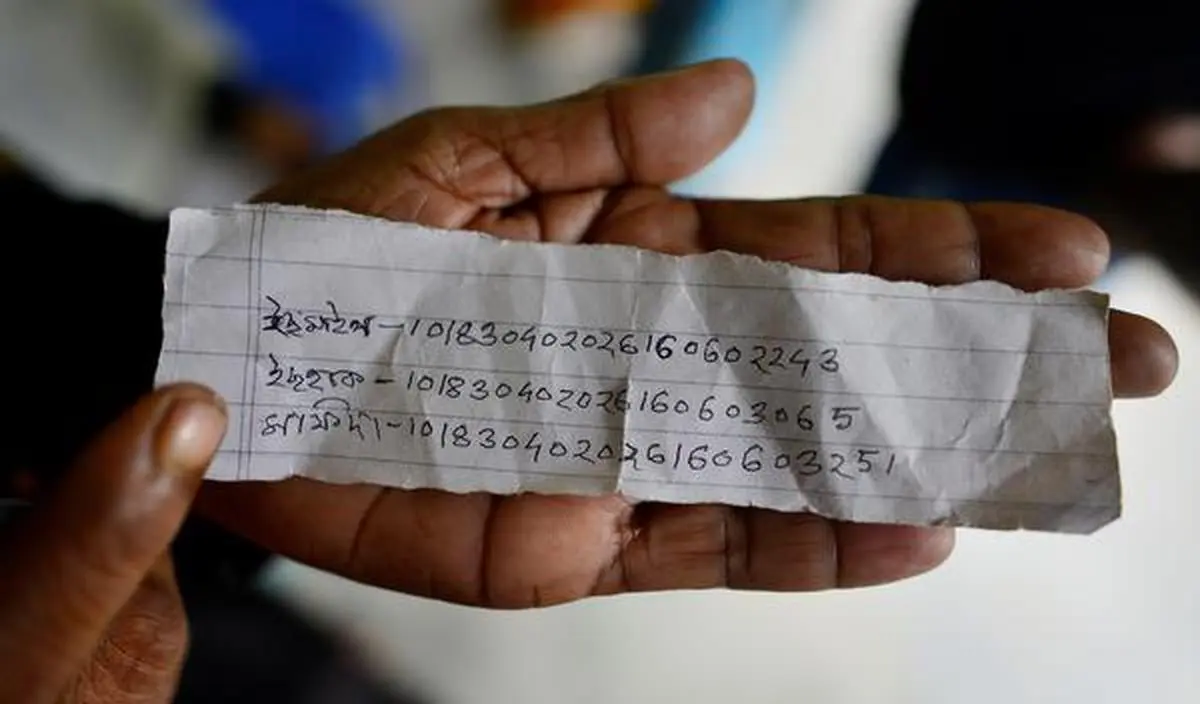 ইছমাইল - 101830402026160602243
ইছহাক - 101830402026160603065
মাফিদা - 101830402026160603251